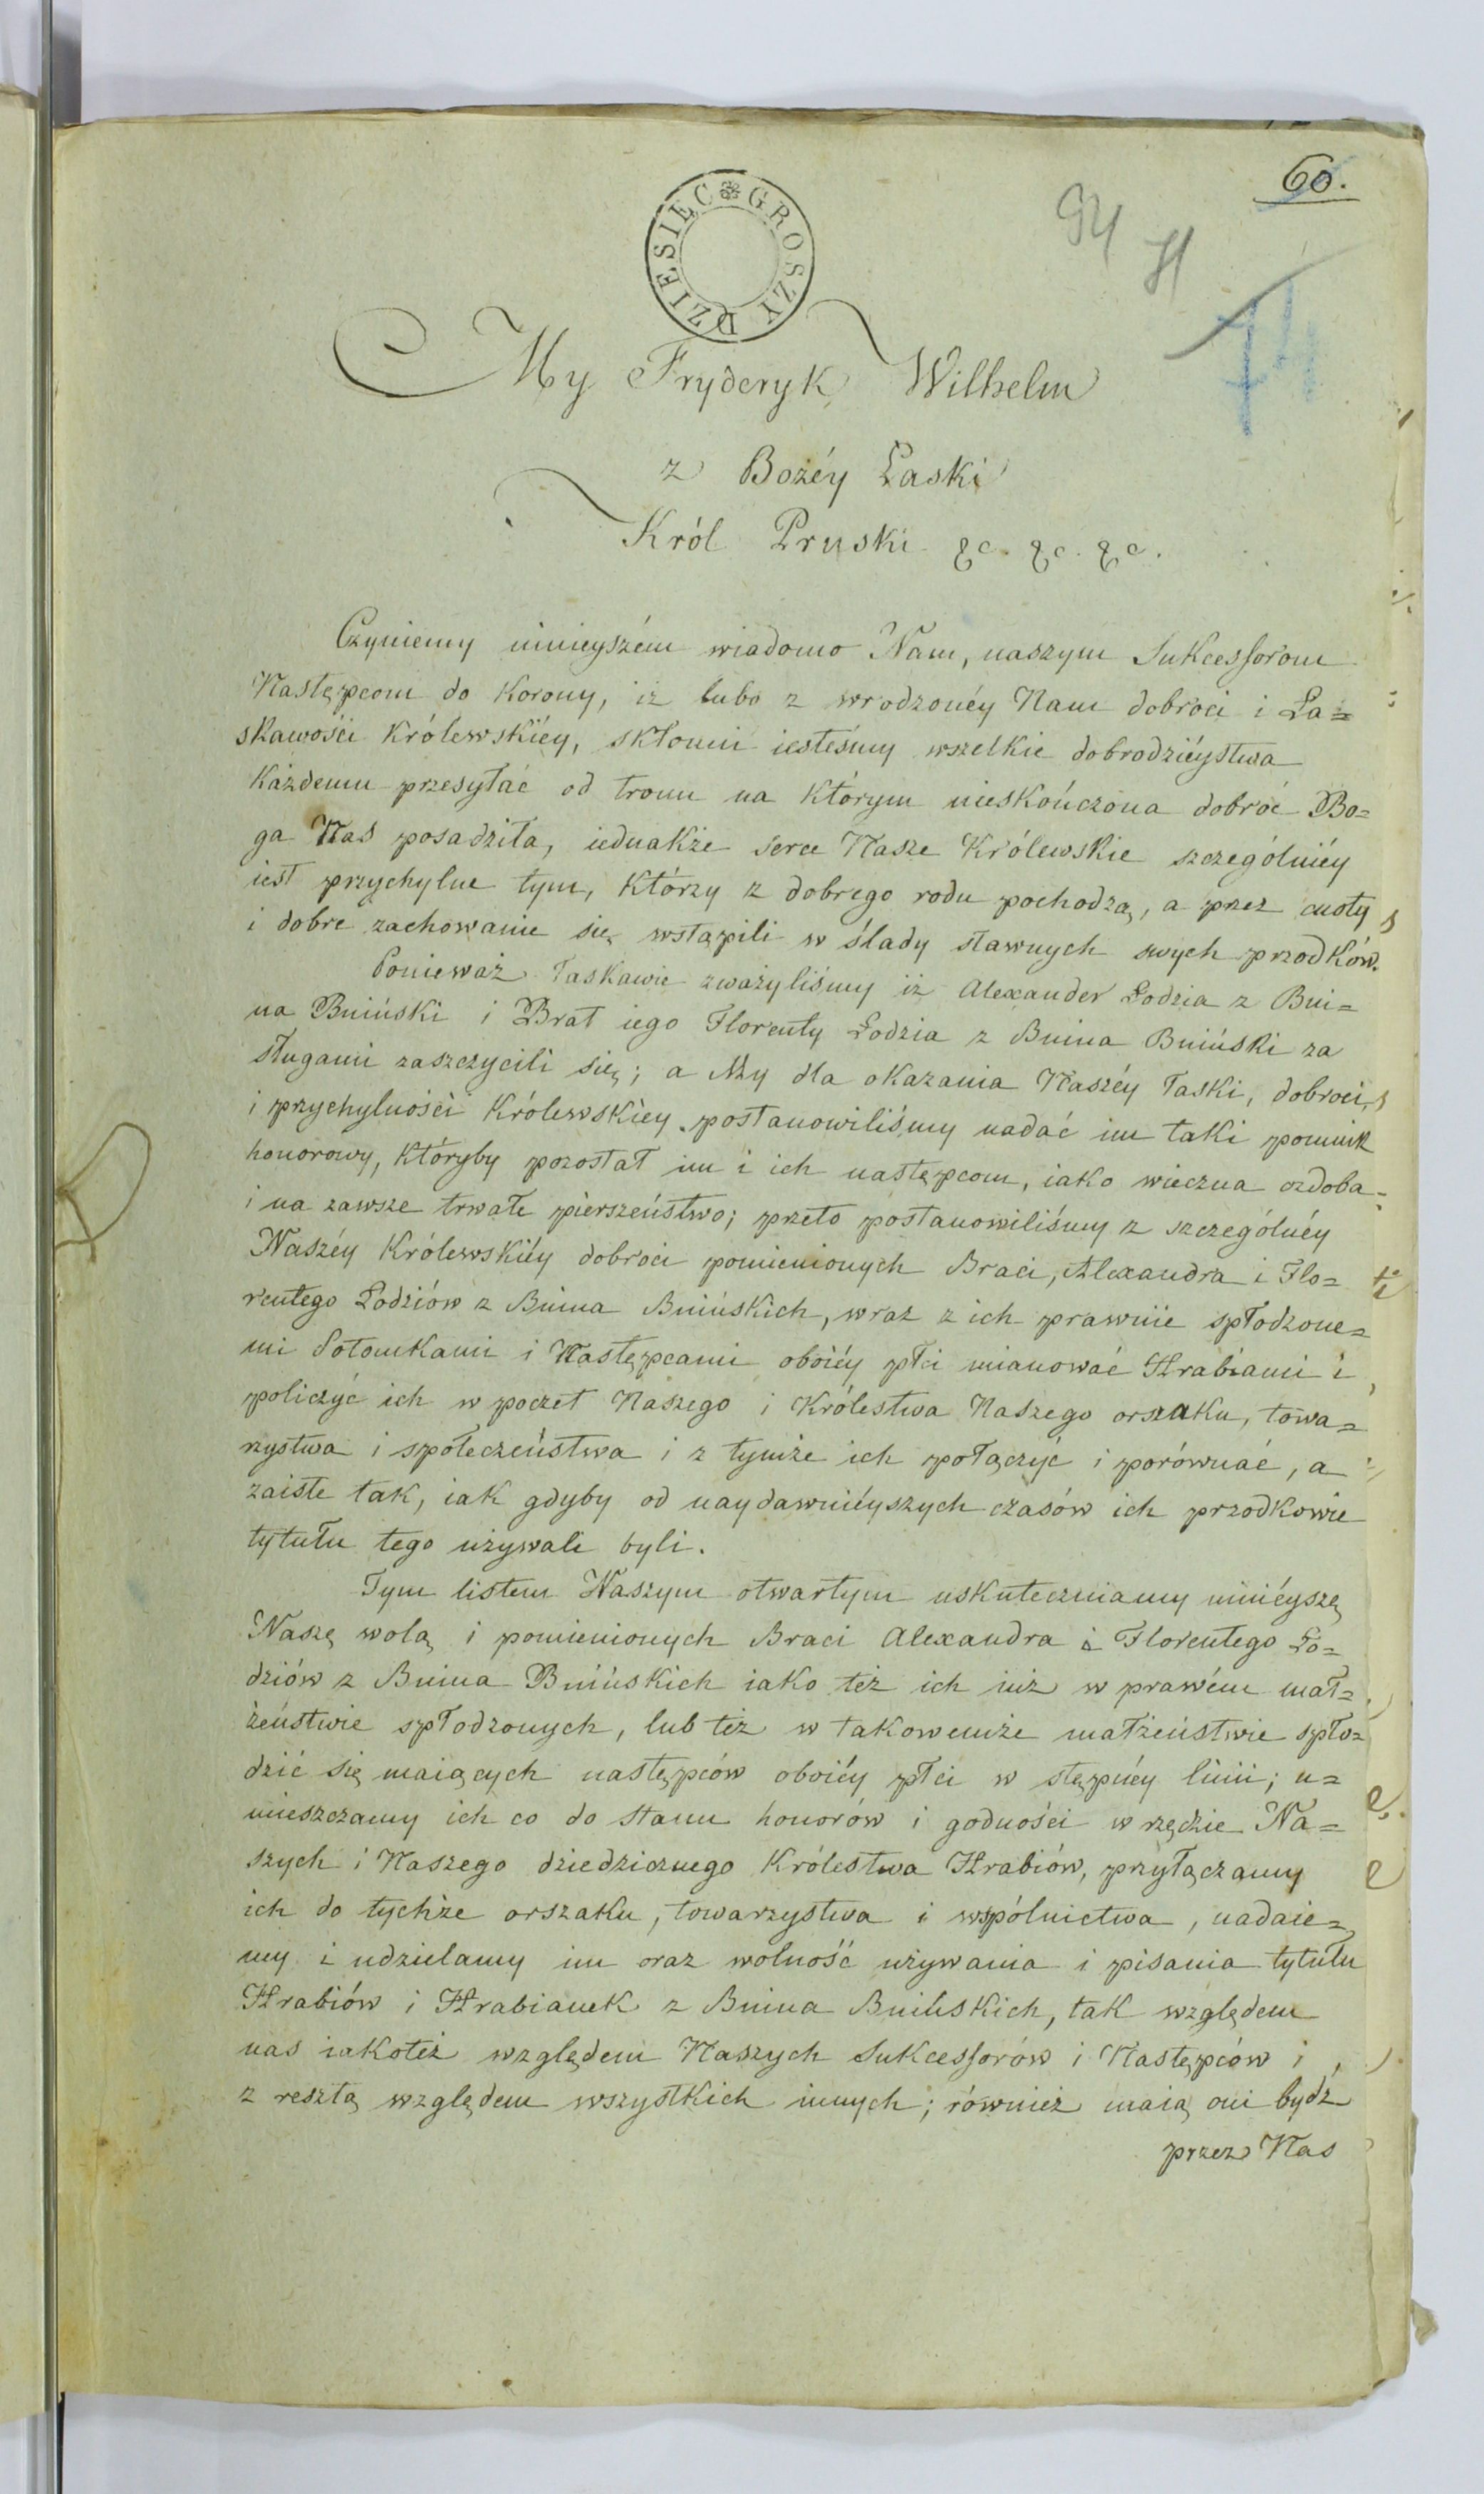 60.
DZIESIĘC GROSZY
94
71
74
My Fryderyk Wilhelm
z Bożéy Łaski
Król Pruski &c. &c. &c.
Czyniemy ninieyszém wiadomo Nam, naszym Sukcessorom
Następcom do Korony, iż lubo z wrodzonéy Nam dobroci i Ła=
skawości Królewskiéy, skłonni iesteśmy wszelkie dobrodziéystwa
każdemu przesyłać od tronu na którym nieskończona dobroć Bo=
ga Nas posadziła, iednakże serce Nasze Królewskie szczególniéy
iest przychylne tym, którzy z dobrego rodu pochodzą, a przez cnoty
i dobre zachowanie się wstąpili w ślady sławnych swych przodków.
Ponieważ łaskawie zważyliśmy iż Alexander Łodzia z Bni=
na Bniński i Brat iego Florenty Łodzia z Bnina Bniński za
sługami zaszczycili się; a My dla okazania Naszéy łaski, dobroci,
i przychylności Królewskiéy postanowiliśmy nadać im taki pomnik
honorowy, któryby pozostał im i ich następcom, iako wieczna ozdoba
i na zawsze trwałe pierszeństwo; przeto postanowiliśmy z szczególnéy
Naszéy Królewskiéy dobroci pomienionych Braci, Alexandra i Flo=
rentego Łodziów z Bnina Bnińskich, wraz z ich prawnie spłodzone=
mi Potomkami i Następcami oboiéy płci mianować Hrabiami i
policzyć ich w poczet Naszego i Królestwa Naszego orszaku, towa=
rzystwa i społeczeństwa i z tymże ich połączyć i porównać, a
zaiste tak, iak gdyby od naydawniéyszych czasów ich przodkowie
tytułu tego używali byli.
Tym listem Naszym otwartym uskuteczniamy niniéyszę
Naszę wolą i pomienionych Braci Alexandra i Florentego Ło=
dziów z Bnina Bnińskich iako też ich iuż w prawém mał=
żeństwie spłodzonych, lub też w takowemże małżeństwie spło=
dzić się maiących następców oboiéy płci w stępnéy linii; u=
mieszczamy ich co do stanu honorów i godności w rzędzie Na=
szych i Naszego dziedzicznego Królestwa Hrabiów, przyłączamy
ich do tychże orszaku, towarzystwa i wspólnictwa, nadaie=
my i udzielamy im oraz wolność używania i pisania tytułu
Hrabiów i Hrabianek z Bnina Bnińskich, tak względem
nas iakoteż względem Naszych Sukcessorów i Następców i
z resztą względem wszystkich innych; również maią oni bydź
przez Nas